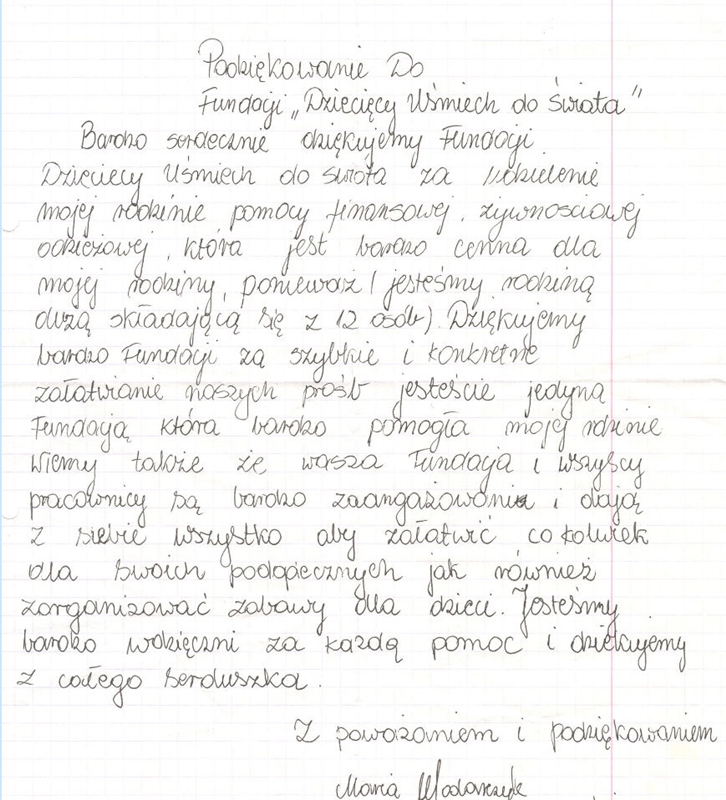 Podziękowanie Do
Fundacji „Dziecięcy Uśmiech do świata"
Bardzo serdecznie dziękujemy Fundacji
Dziecięcy Uśmiech do świata za udzielenie
mojej rodzinie pomocy finansowej, żywnościowej
odzieżowej, która jest bardzo cenna dla
mojej rodziny, ponieważ ( jesteśmy rodziną
dużą składającą się z 12 osób). Dziękujemy
bardzo Fundacji za szybkie i konkretne
załatwianie naszych próśb jesteście jedyną
Fundacją która bardzo pomogła mojej rodzinie
wiemy także że wasza Fundacja i wszyscy
pracownicy są bardzo zaangażowani i dają
z siebie wszystko aby załatwić co kolwiek
dla swoich podopiecznych jak również
zorganizować zabawy dla dzieci. Jesteśmy
bardzo wdzięczni za każdą pomoc i dziękujemy
z całego serduszka.
Z poważaniem i podziękowaniem
Maria